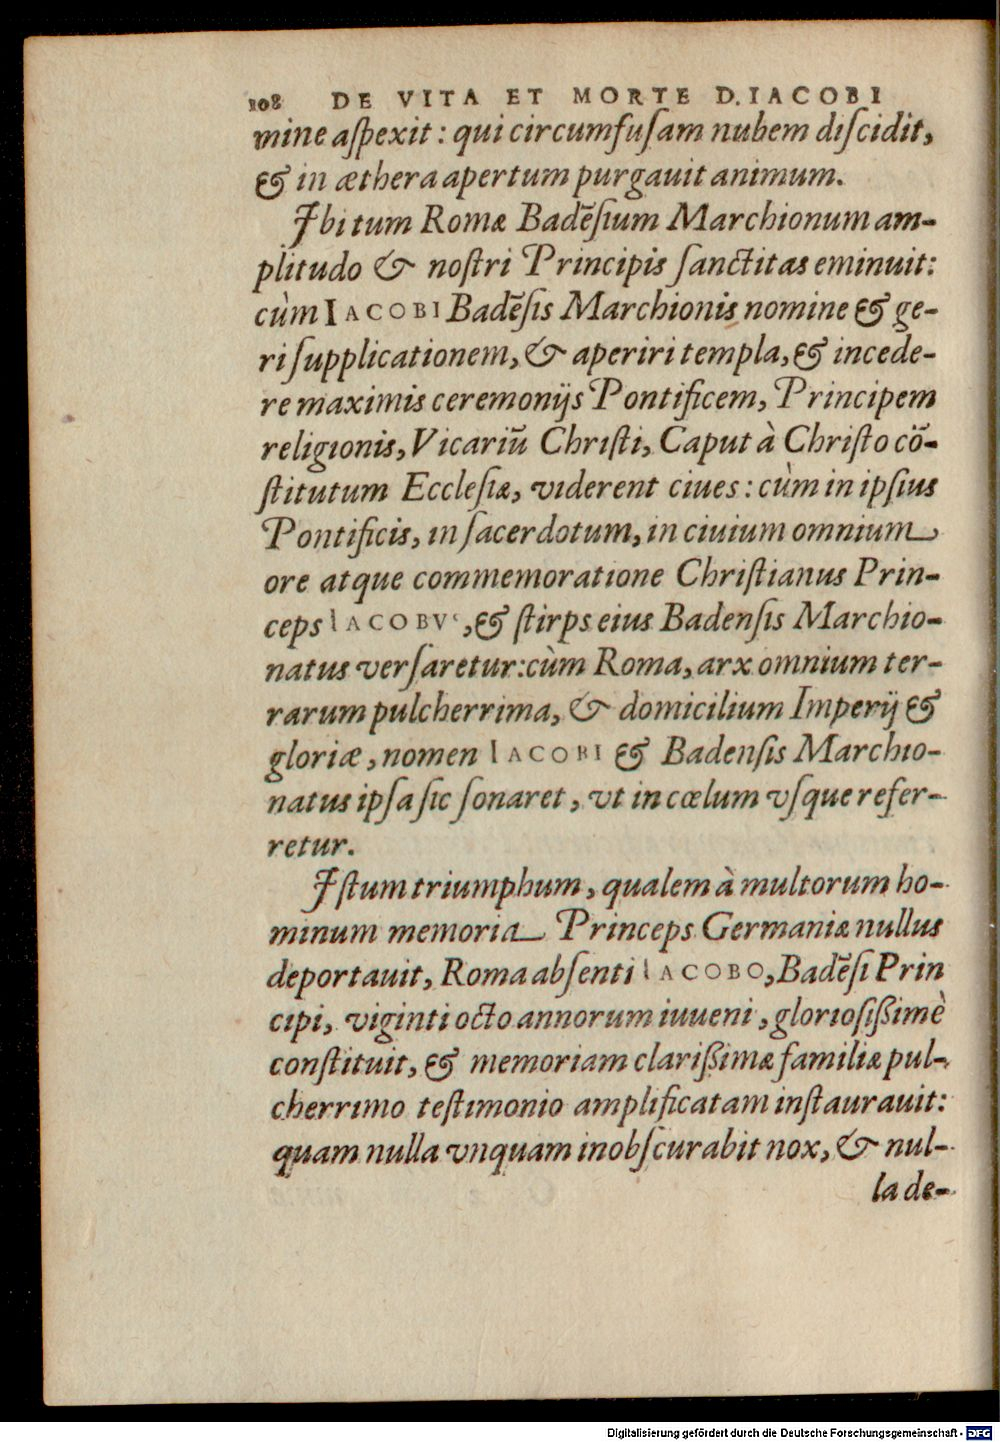 108 DE VITA ET MORTE D. IACOBI
mine aſpexit: qui circumfuſam nubem diſcidit,
& in æthera apertum purgauit animum.
Ibi tum Romæ Badēſium Marchionum am-
plitudo & noſtri Principis ſanctitas eminuit:
cùm IACOBI Badēſis Marchionis nomine & ge-
ri ſupplicationem, & aperiri templa, & incede-
re maximis ceremonijs Pontificem, Principem
religionis, Vicariū Chriſti, Caput à Chriſto cō-
ſtitutum Eccleſiæ, viderent ciues: cùm in ipſius
Pontificis, in ſacerdotum, in ciuium omnium
ore atque commemoratione Chriſtianus Prin-
ceps IACOBVS, & ſtirps eius Badenſis Marchio-
natus verſaretur: cùm Roma, arx omnium ter-
rarum pulcherrima, & domicilium Imperij &
gloriæ, nomen IACOBI & Badenſis Marchio-
natus ipſa ſic ſonaret, vt in cœlum vſque refer-
retur.
Iſtum triumphum, qualem à multorum ho-
minum memoria Princeps Germaniæ nullus
deportauit, Roma abſenti IACOBO, Badēſi Prin
cipi, viginti octo annorum iuueni, glorioſißimè
conſtituit, & memoriam clarißimæ familiæ pul-
cherrimo teſtimonio amplificatam inſtaurauit:
quam nulla vnquam inobſcurabit nox, & nul-
la de-
Digitalisierung gefördert durch die Deutsche Forschungsgemeinschaft - DFG